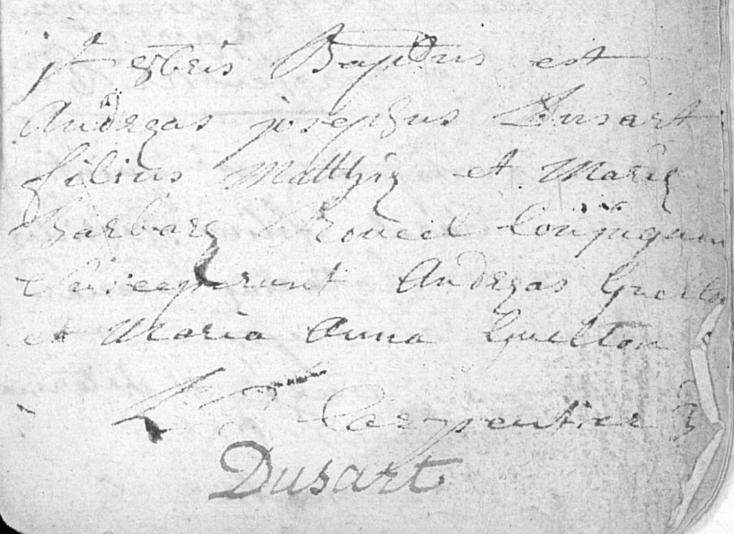 8bris Baptus est
Andreas josephus Dusart
filius Matthiæ et Mariæ
Barbaræ conjugum
Susceperunt Andreas
et Maria Anna Guelton
Carpentier
Dusart